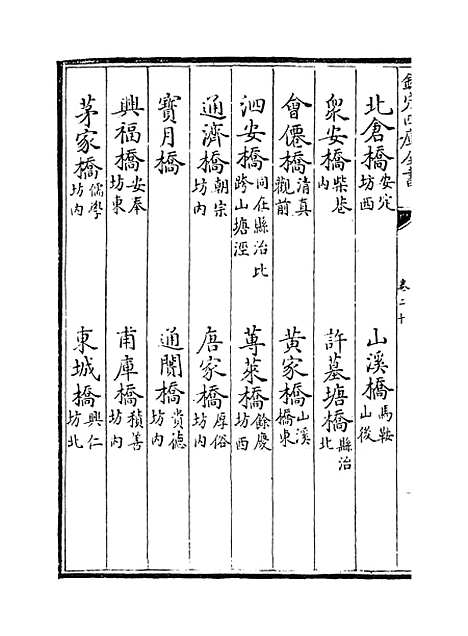 欽定四庫全書
卷二十
北倉橋安定坊西
山溪橋馬鞍山後
衆安橋柴巷内
許墓塘橋縣治北
會僊橋清真觀前
黃家橋山溪橋東
泗安橋問在縣治比跨山塘涇
蓴菜橋餘慶坊西
通濟橋朝宗坊内
唐家橋厚俗坊内
寶月橋
通闤橋貴德坊内
興福橋安奉坊東
甫庫橋積善坊内
茅家橋儒學坊内
東城橋興仁坊北